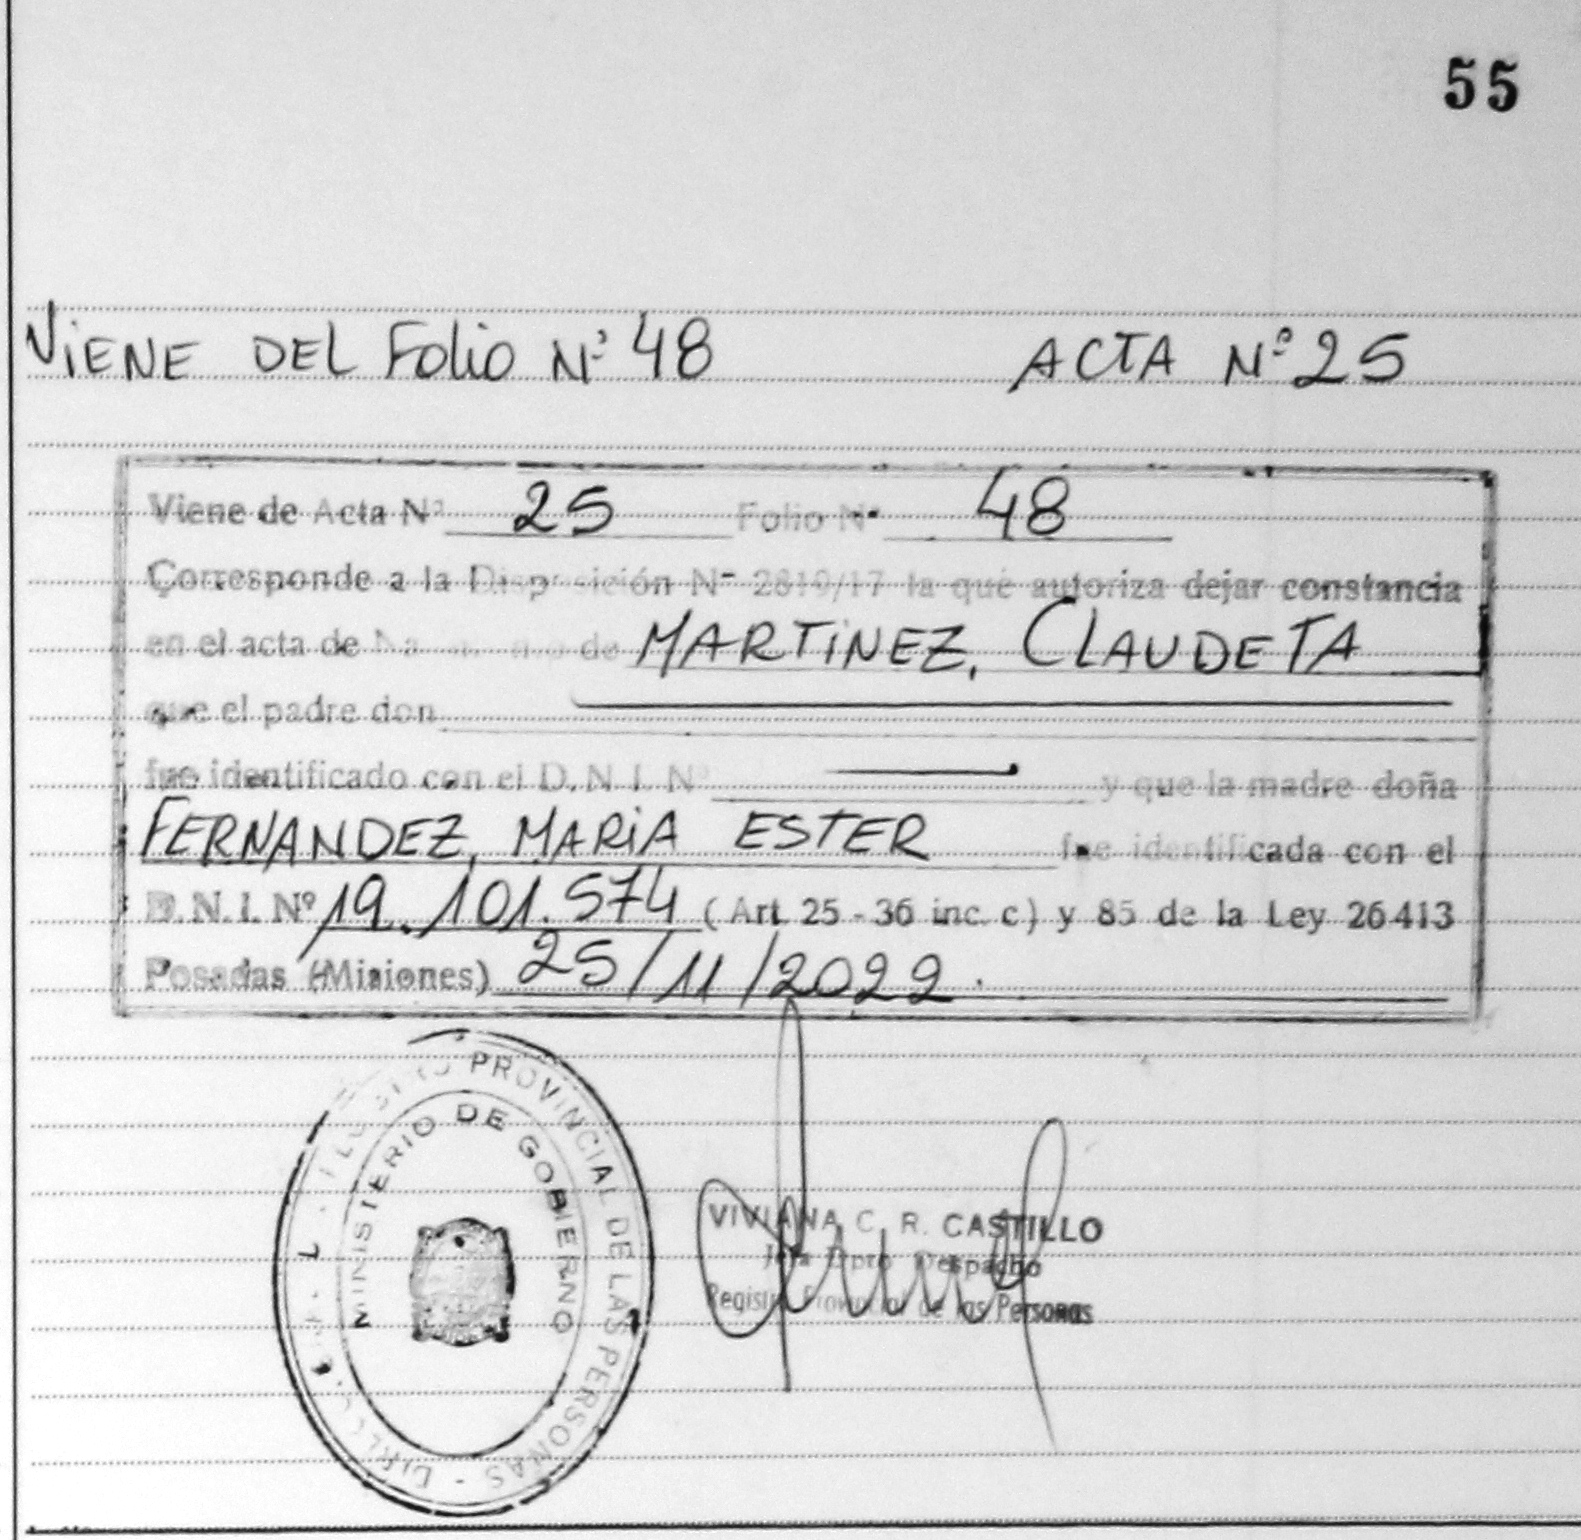 55
VIENE DEL FOLIO Nº 48 ACTA Nº 25
Viene de Acta Nº 25 Folio Nº 48
Corresponde a la Disposición Nº 2819/17 la que autoriza dejar constancia
en el acta de de MARTINEZ, CLAUDETA
que el padre don
fue identificado con el D.N.I. Nº y que la madre doña
FERNANDEZ, MARIA ESTER fue identificada con el
D.N.I. Nº 19.101.574 (Art. 25 - 36 inc. c) y 85 de la Ley 26413
Posadas (Misiones) 25/11/2022.
PROVINCIAL DE LAS PERSONAS
MINISTERIO DE GOBIERNO
VIVIANA C. R. CASTILLO
Jefa Dpto Despacho
Registro Provincial de las Personas